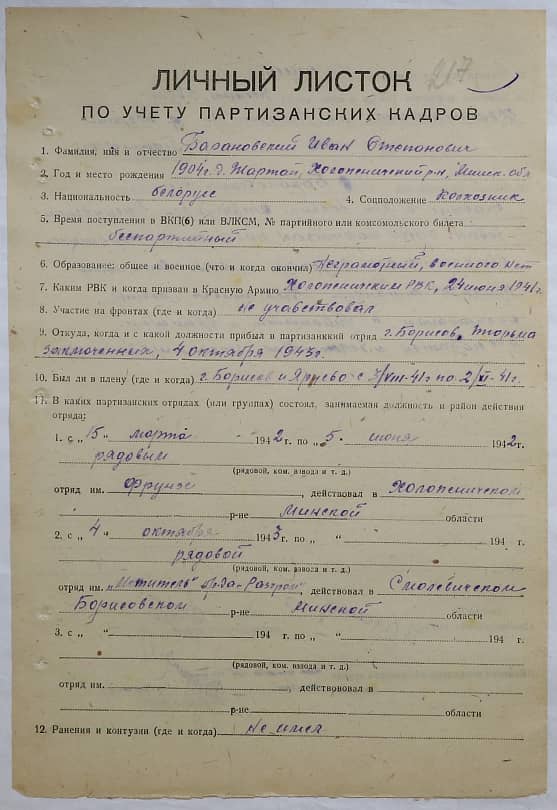 217
ЛИЧНЫЙ ЛИСТОК
ПО УЧЕТУ ПАРТИЗАНСКИХ КАДРОВ
1. Фамилия, имя и отчество Барановский Иван Степанович
2. Год и место рождения 1904 г. д. Жартай, Холопеничский р-н, Минск. обл
3. Национальность белорус 4. Соцположение Колхозник
5. Время поступления в ВКП(б) или ВЛКСМ, № партийного или комсомольского билета
беспартийный
6. Образование: общее и военное (что и когда окончил) Неграмотный, военного нет
7. Каким РВК и когда призван в Красную Армию Холопеничским РВК, 24 июня 1941 г.
8. Участие на фронтах (где и когда) не учавствовал
9. Откуда, когда и с какой должности прибыл в партизанский отряд г. Борисов, Тюрьма
заключенных, 4 октября 1943 г.
10. Был ли в плену (где и когда) г. Борисов и Ярцево с 7/VIII-41 г по 2/XI-41 г.
11. В каких партизанских отрядах (или группах) состоял, занимаемая должность и район действия
отряда:
1. с „15" марта 1942 г. по „5" июня 1942 г.
рядовым
(рядовой, ком. взвода и т. д.)
отряд им. Фрунзе, действовал в Холопеничском
р-не Минской области
2. с „4" октября 1943 г. по „ " 194 г.
рядовой
(рядовой, ком. взвода и т. д.)
отряд им. „Мститель" бр-да-Разгром, действовал в Смолевичском
Борисовском р-не Минской области
3. с „ " 194 г. по „ " 194 г.
(рядовой, ком. взвода и т. д.)
отряд им. действовал в
р-не области
12. Ранения и контузии (где и когда) Не имел